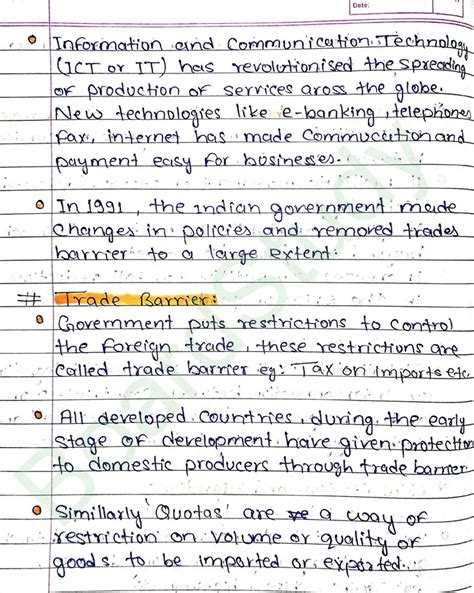 Date:
Information and Communication Technology
(ICT or IT) has revolutionised the spreading
of production of services aross the globe.
New technologies like e-banking, telephones
fax, internet has made Commucation and
payment easy for businesses.
In 1991, the indian government made
changes in policies and removed trades
barrier to a large extent.
# Trade Barrier:
Government puts restrictions to control
the foreign trade, these restrictions are
called trade barrier eg: Tax on imports etc.
All developed countries, during the early
stage of development have given protection
to domestic producers through trade barrier
Simillarly 'Quotas' are a way of
restriction on volume or quality of
goods to be imported or exported.
BoardStudy